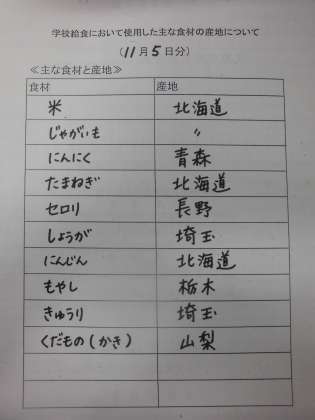 学校給食において使用した主な食材の産地について
(11月5日分)
≪主な食材と産地≫
食材 産地
米 北海道
じゃがいも 〃
にんにく 青森
たまねぎ 北海道
セロリ 長野
しょうが 埼玉
にんじん 北海道
もやし 栃木
きゅうり 埼玉
くだもの(かき) 山梨